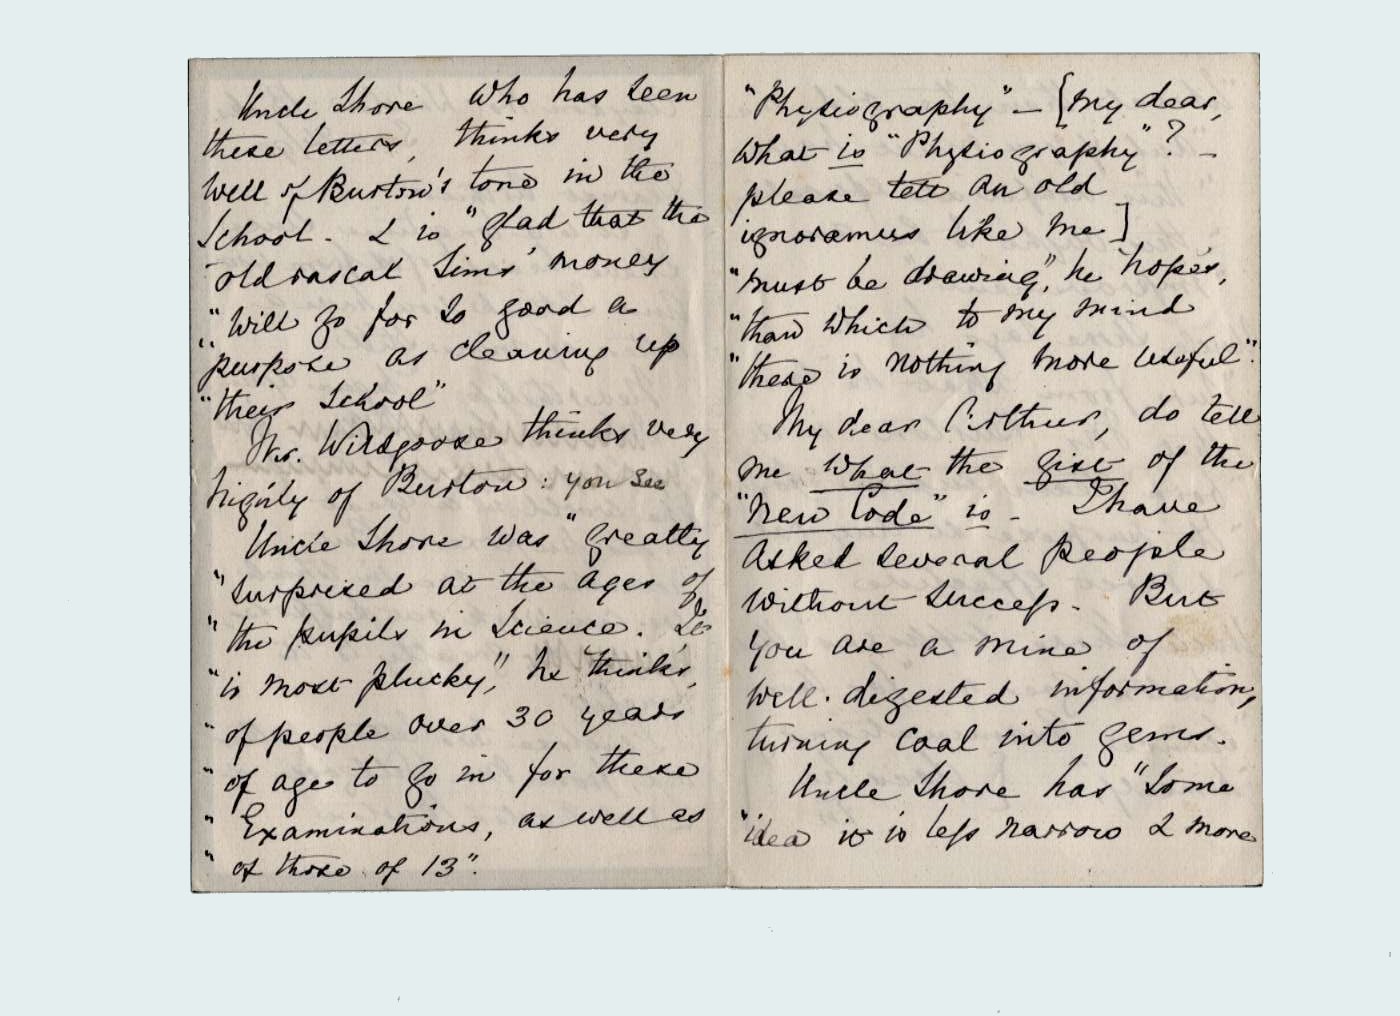 Uncle Shore who has seen
these letters, thinks very
well of Burton's tone in the
School. & is "glad that the
"old rascal Sims' money
"will go for so good a
"purpose as cleaning up
"their School"
Mr. Wildgoose thinks very
highly of Burton: you see
Uncle Shore was "greatly
"surprised at the ages of
"the pupils in Science. It
"is most plucky," he thinks,
"of people over 30 years
"of age to go in for these
"Examinations, as well as
"of those of 13".
"Physiography" – [my dear,
what is "Physiography"? –
please tell an old
ignoramus like me]
"must be drawing", he hopes,
"than which to my mind
"there is nothing more useful".
My dear Arthur, do tell
me what the gist of the
"New Code" is – I have
asked several people
without success. But
you are a mine of
well-digested information,
turning coal into gems.
Uncle Shore has "some
"idea it is less narrow & more